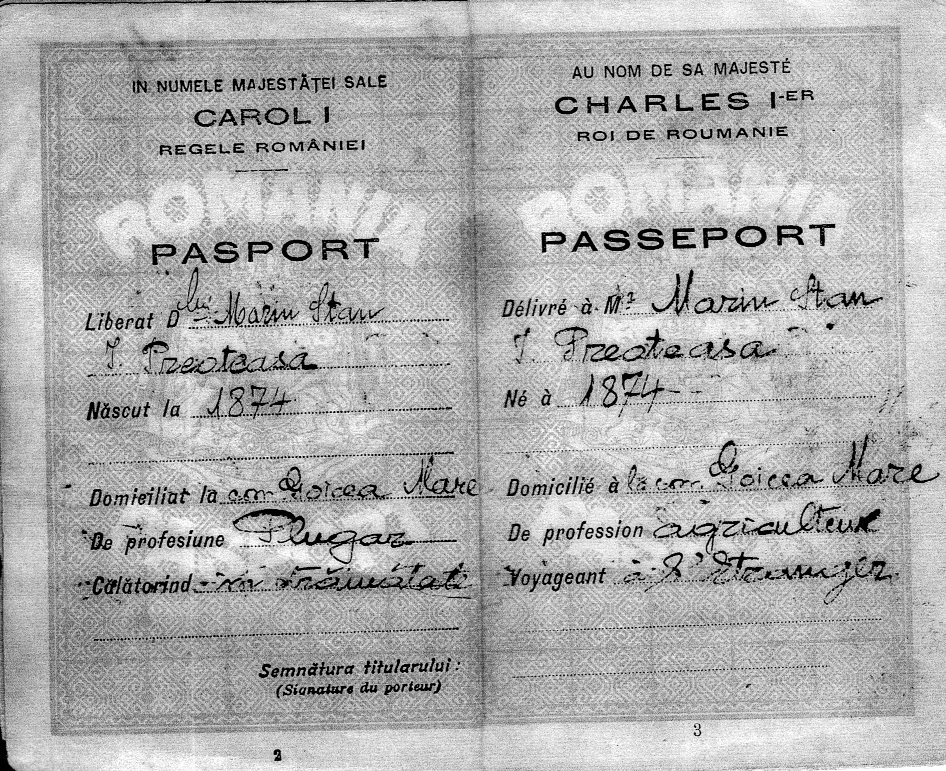 IN NUMELE MAJESTĂŢEI SALE
CAROL I
REGELE ROMÂNIEI
ROMANIA
PASPORT
Liberat Dlui Marin Stan
I. Preoteasa
Născut la 1874
Domiciliat la com Goicea Mare
De profesiune Plugar
Călătorind în străinătate
Semnătura titularului:
(Signature du porteur)
2
AU NOM DE SA MAJESTÉ
CHARLES I-ER
ROI DE ROUMANIE
ROMANIA
PASSEPORT
Délivré à Mr Marin Stan
I. Preoteasa
Né à 1874
Domicilié à la com. Goicea Mare
De profession agriculteur
Voyageant à l'Etranger
3